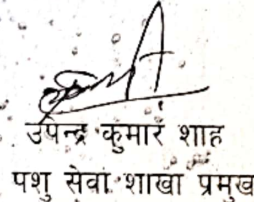 उपेन्द्र कुमार शाह
पशु सेवा शाखा प्रमुख